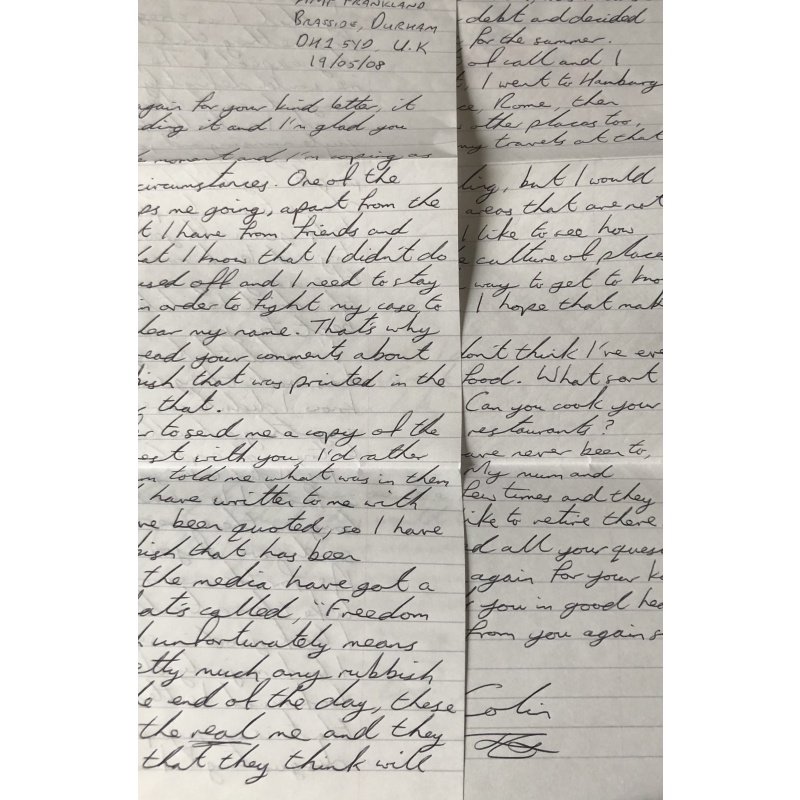 HMP FRANKLAND
BRASSIDE, DURHAM
DH1 5YD, U.K
19/05/08
again for your kind letter, it
ding it and I'm glad you
moment and I'm coping as
circumstances. One of the
ps me going, apart from the
t I have from friends and
at I know that I didn't do
used off and I need to stay
in order to fight my case to
lear my name. That's why
ead your comments about
bish that was printed in the
that.
r to send me a copy of the
est with you, I'd rather
told me what was in them
have written to me with
ve been quoted, so I have
bish that has been
the media have got a
at's called, "Freedom
unfortunately means
etty much any rubbish
e end of the day, these
the real me and they
that they think will
debt and decided
for the summer.
of call and I
I went to Hamburg
ce, Rome, then
other places too,
my travels at that
ling, but I would
areas that are not
I like to see how
e culture of place
way to get to kno
I hope that mak
don't think I've eve
food. What sort
Can you cook your
restaurants?
ave never been to,
My mum and
few times and they
like to retire there
d all your ques
again for your k
you in good hea
from you again s
Colin